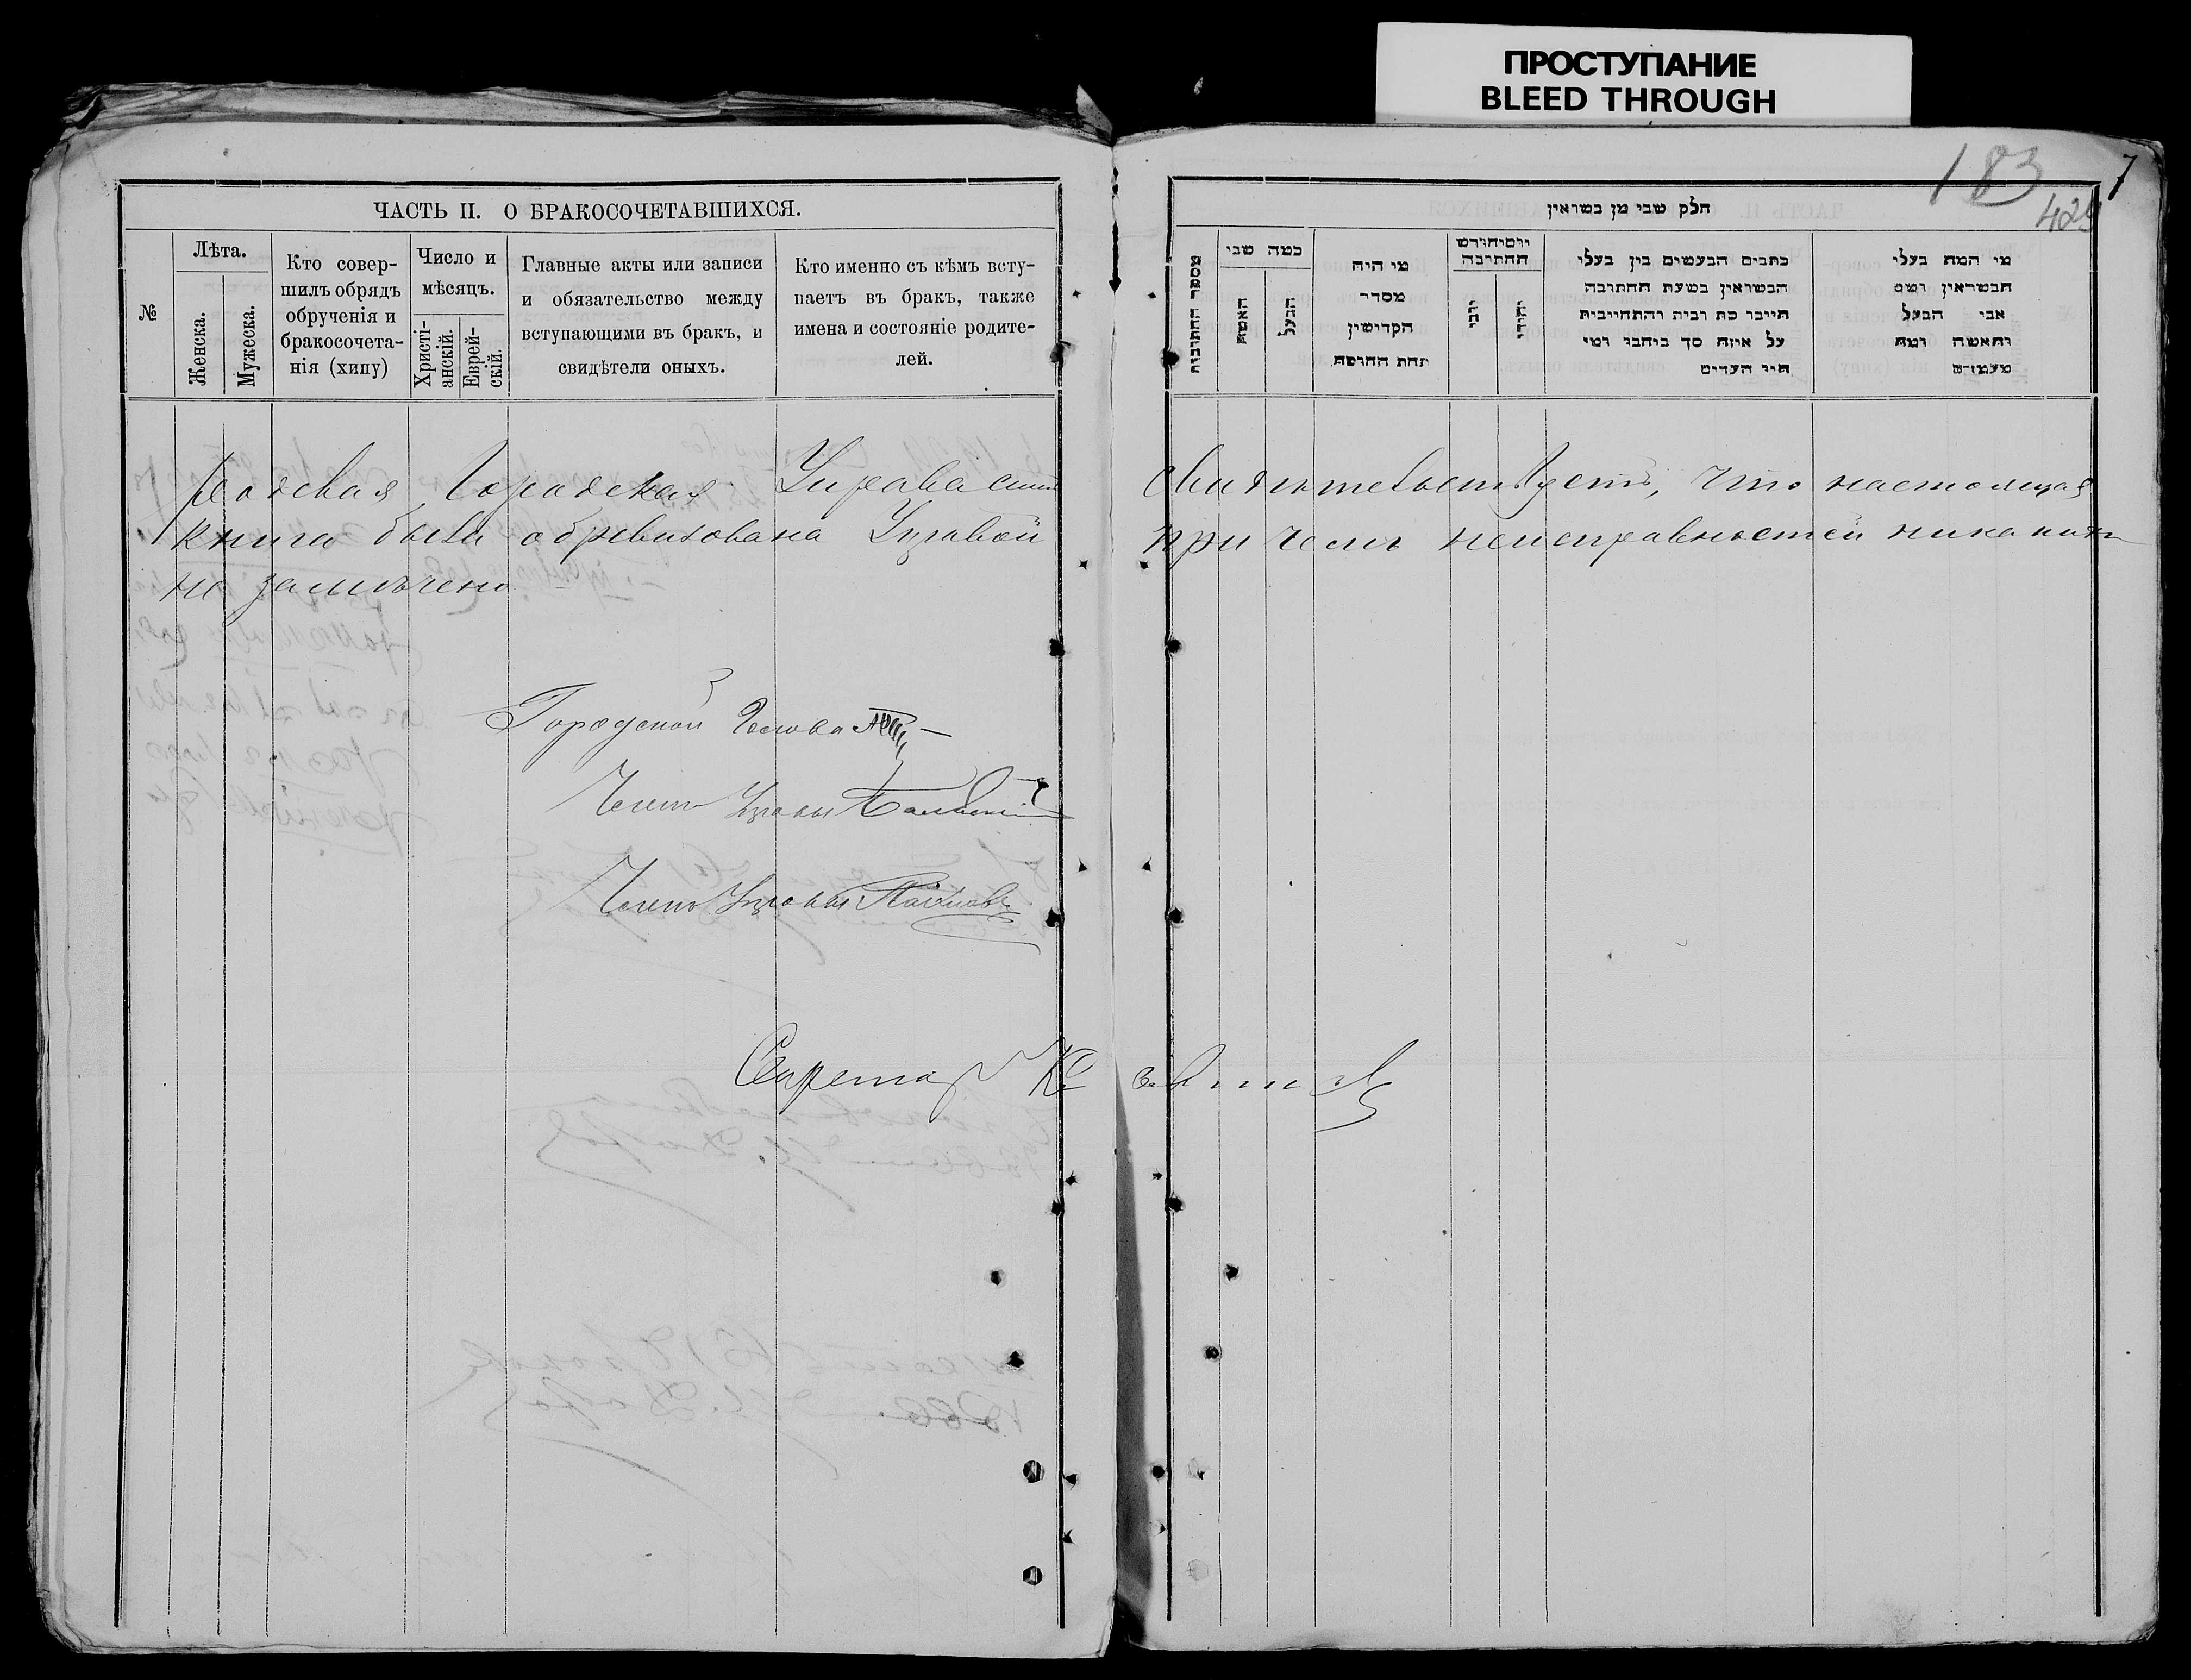 ПРОСТУПАНИЕ
BLEED THROUGH
183
7
ЧАСТЬ II. О БРАКОСОЧЕТАВШИХСЯ.
№
Лѣта.
Женска.
Мужеска.
Кто совер-
шилъ обрядъ
обрученія и
бракосочета-
нія (хипу)
Число и
мѣсяцъ.
Христі-
анскій.
Еврей-
скій.
Главные акты или записи
и обязательство между
вступающими въ бракъ, и
свидѣтели оныхъ.
Кто именно съ кѣмъ всту-
паетъ въ бракъ, также
имена и состояніе родите-
лей.
חלק שני מן נשואין
מספר החתונות
כמה שני
האשה
הבעל
מי היה
מסדר
הקדישין
תחת החופה
יום וחודש
החתונה
כתבים הנעשים בין בעלי
הנשואין בשעת החתונה
על איזה סך
העדים
מי המה בעלי
הנשואין ושם
אבי הבעל
והאשה ומה
מעמדם
Городская Управа симъ свидѣтельствуетъ, что настоящая
книга была обревизована Управой при чемъ неисправностей никакихъ
не замѣчено
Городской Голова
Членъ Управы
Членъ Управы
Секретарь